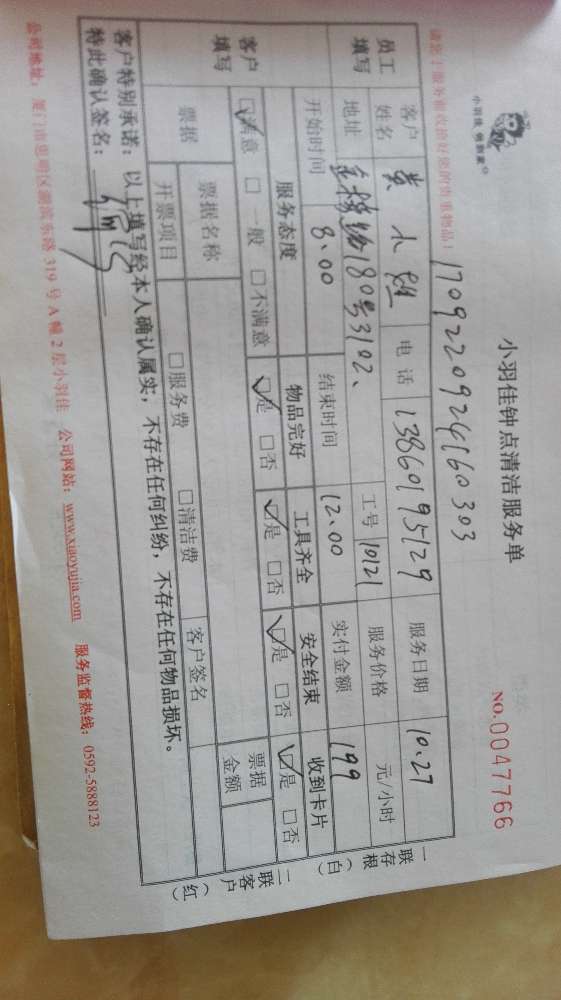 小羽佳 您的家
小羽佳钟点清洁服务单
NO.0047766
17092209241160303
员工填写
客户姓名 黄小姐 电话 13860195129 服务日期 10.27
地址 180号3102、 工号 10121 服务价格 元/小时
开始时间 8.00 结束时间 12.00 实付金额 199
客户填写
服务态度 物品完好 工具齐全 安全结束 收到卡片
☑满意 □一般 □不满意 ☑是 □否 ☑是 □否 ☑是 □否 ☑是 □否
票据 票据名称 票据金额
开票项目 □服务费 □清洁费 客户签名
客户特别承诺：以上填写经本人确认属实，不存在任何纠纷，不存在任何物品损坏。
特此确认签名：
一联存根（白）
二联客户（红）
公司地址：厦门市思明区湖滨东路319号A幢2层小羽佳 公司网站：www.xiaoyujia.com 服务监督热线：0592-5888123